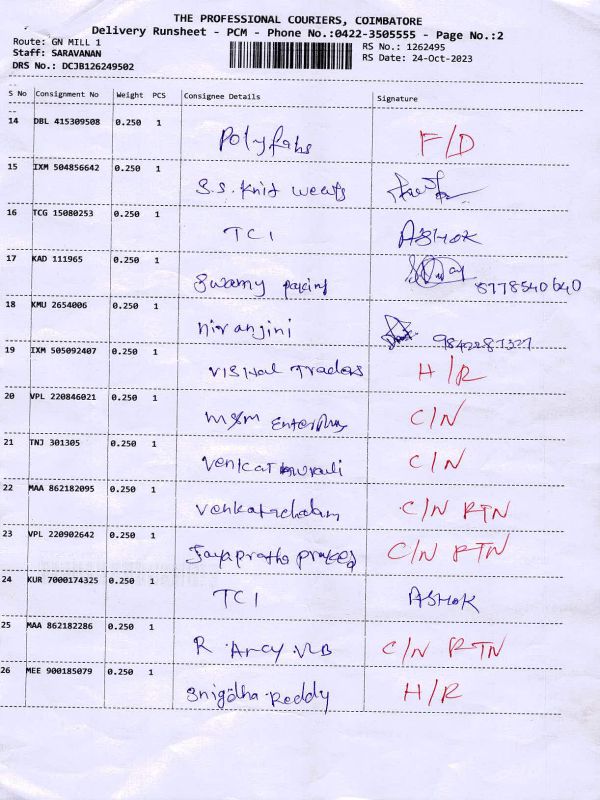 THE PROFESSIONAL COURIERS, COIMBATORE
Delivery Runsheet - PCM - Phone No.:0422-3505555 - Page No.:2
Route: GN MILL 1
RS No.: 1262495
Staff: SARAVANAN
RS Date: 24-Oct-2023
DRS No.: DCJB126249502
S No Consignment No Weight PCS Consignee Details Signature
14 DBL 415309508 0.250 1 F/D
15 IXM 504856642 0.250 1 S.S. Knit
16 TCG 15080253 0.250 1 TCI ASHOK
17 KAD 111965 0.250 1 Swamy 8778540640
18 KMU 2654006 0.250 1 niranjini
19 IXM 505092407 0.250 1 Traders H/R
20 VPL 220846021 0.250 1 C/N
21 TNJ 301305 0.250 1 C/N
22 MAA 862182095 0.250 1 Venkatachalam C/N RTN
23 VPL 220902642 0.250 1 C/N RTN
24 KUR 7000174325 0.250 1 TCI ASHOK
25 MAA 862182286 0.250 1 R. C/N RTN
26 MEE 900185079 0.250 1 Snigdha Reddy H/R